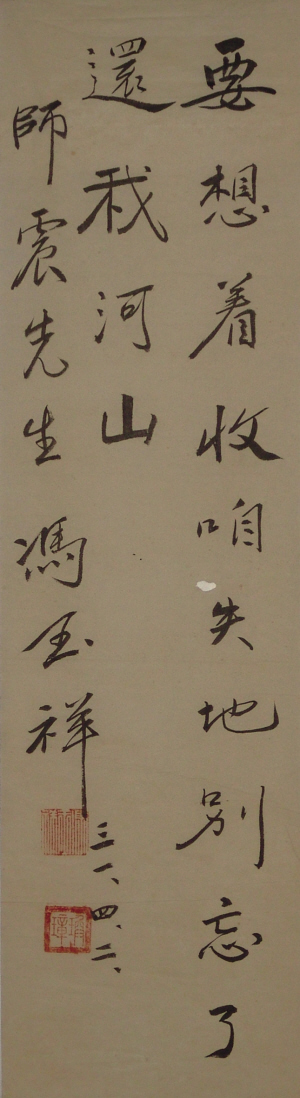 要想着收咱失地別忘了
還我河山
師震先生 馮玉祥
三一、四、二、